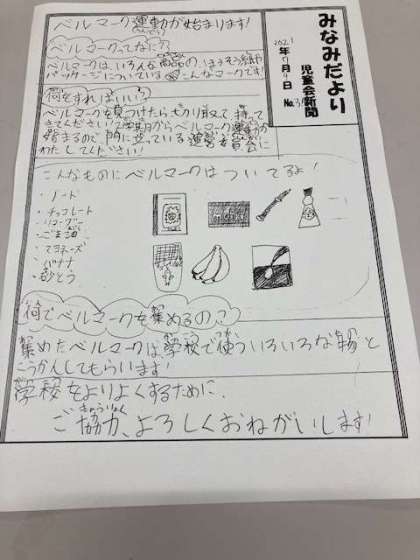 みなみだより
児童会新聞
2021年7月9日
No.3
ベルマーク運動が始まります!
ベルマークってなに?
ベルマークは、いろんな商品の、ほうそう紙や
パッケージについている こんなマークです!
何をすればいい?
ベルマークを見つけたら切り取って、持って
きてください! からベルマーク運動が
始まるので門に立っている運営委員会に
わたしてください!
こんなものにベルマークはついてるよ!
・ノート
・チョコレート
・リコーダー
・ごま油
・マヨネーズ
・バナナ
・さとう
何でベルマークを集めるの?
集めたベルマークは、学校で使ういろいろな物と
こうかんしてもらいます!
学校をよりよくするために、
ご協力、よろしくおねがいします!
きょうりょく